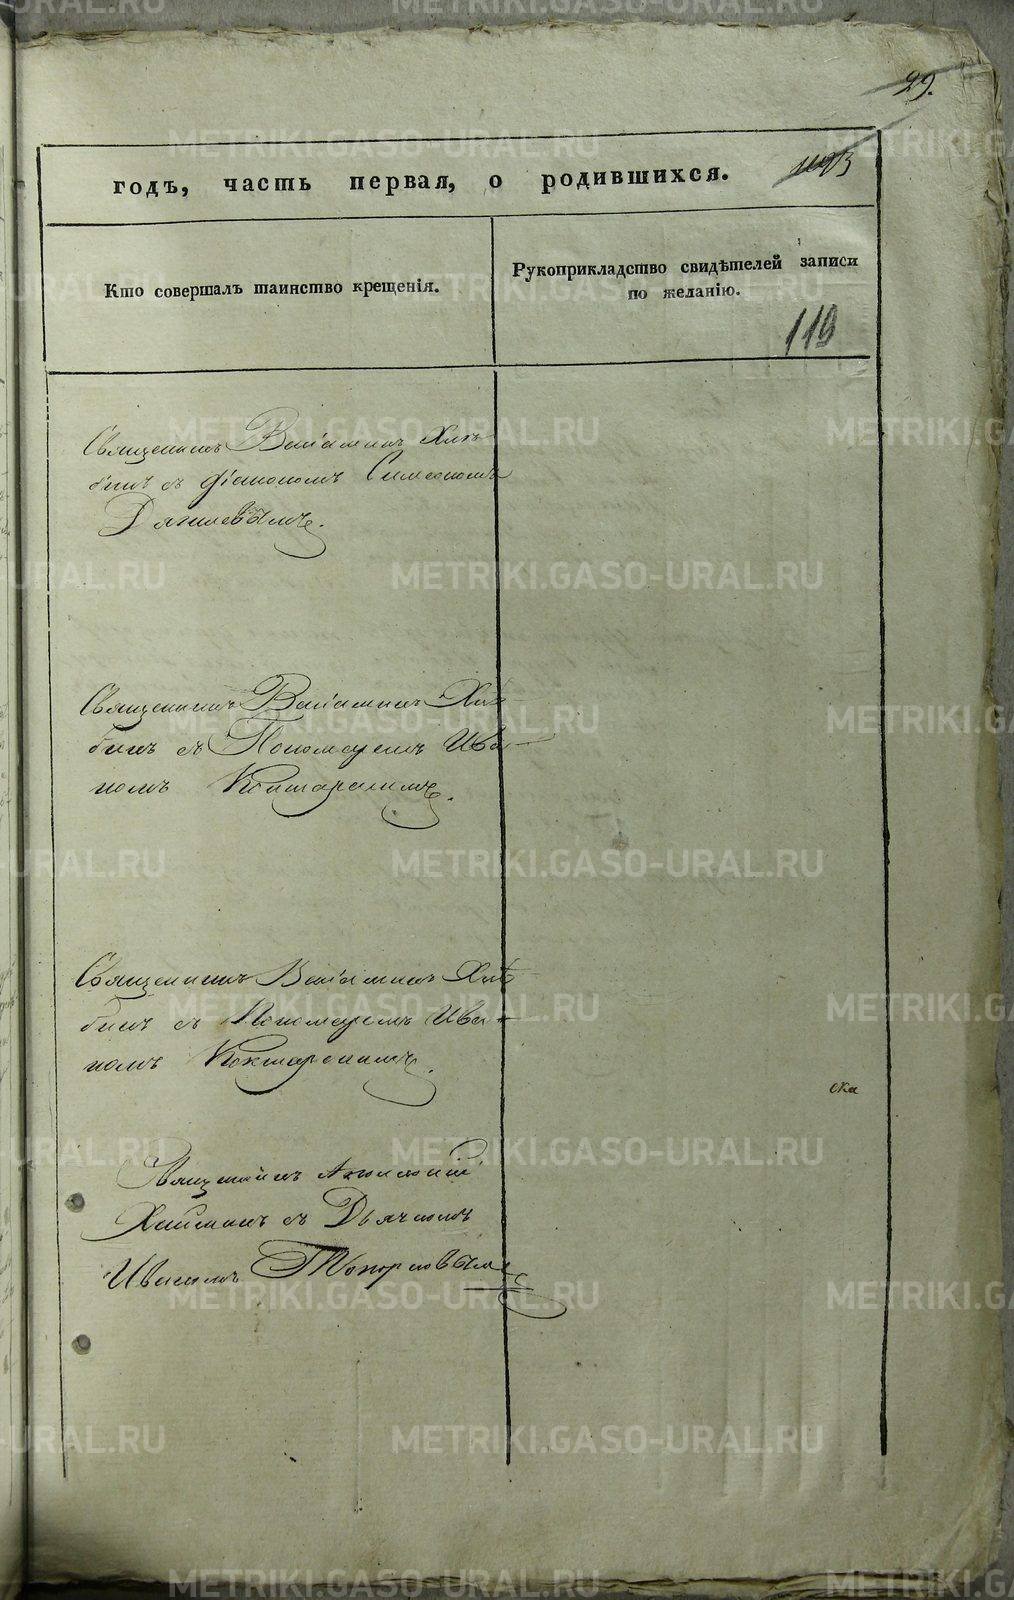 29.
годъ, часть первая, о родившихся.
Кто совершалъ таинство крещенія.
Рукоприкладство свидѣтелей записи
по желанію.
119
Священникъ Веніаминъ Хлѣ
бинъ съ діакономъ Симеономъ
Дягилевымъ.
Священникъ Веніаминъ Хлѣ
бинъ съ Пономаремъ Ива
номъ Кокшарскимъ.
Священникъ Веніаминъ Хлѣ
бинъ съ Пономаремъ Ива
номъ Кокшарскимъ.
Священникъ
съ Дьячкомъ
Иваномъ Топорковымъ
METRIKI.GASO-URAL.RU